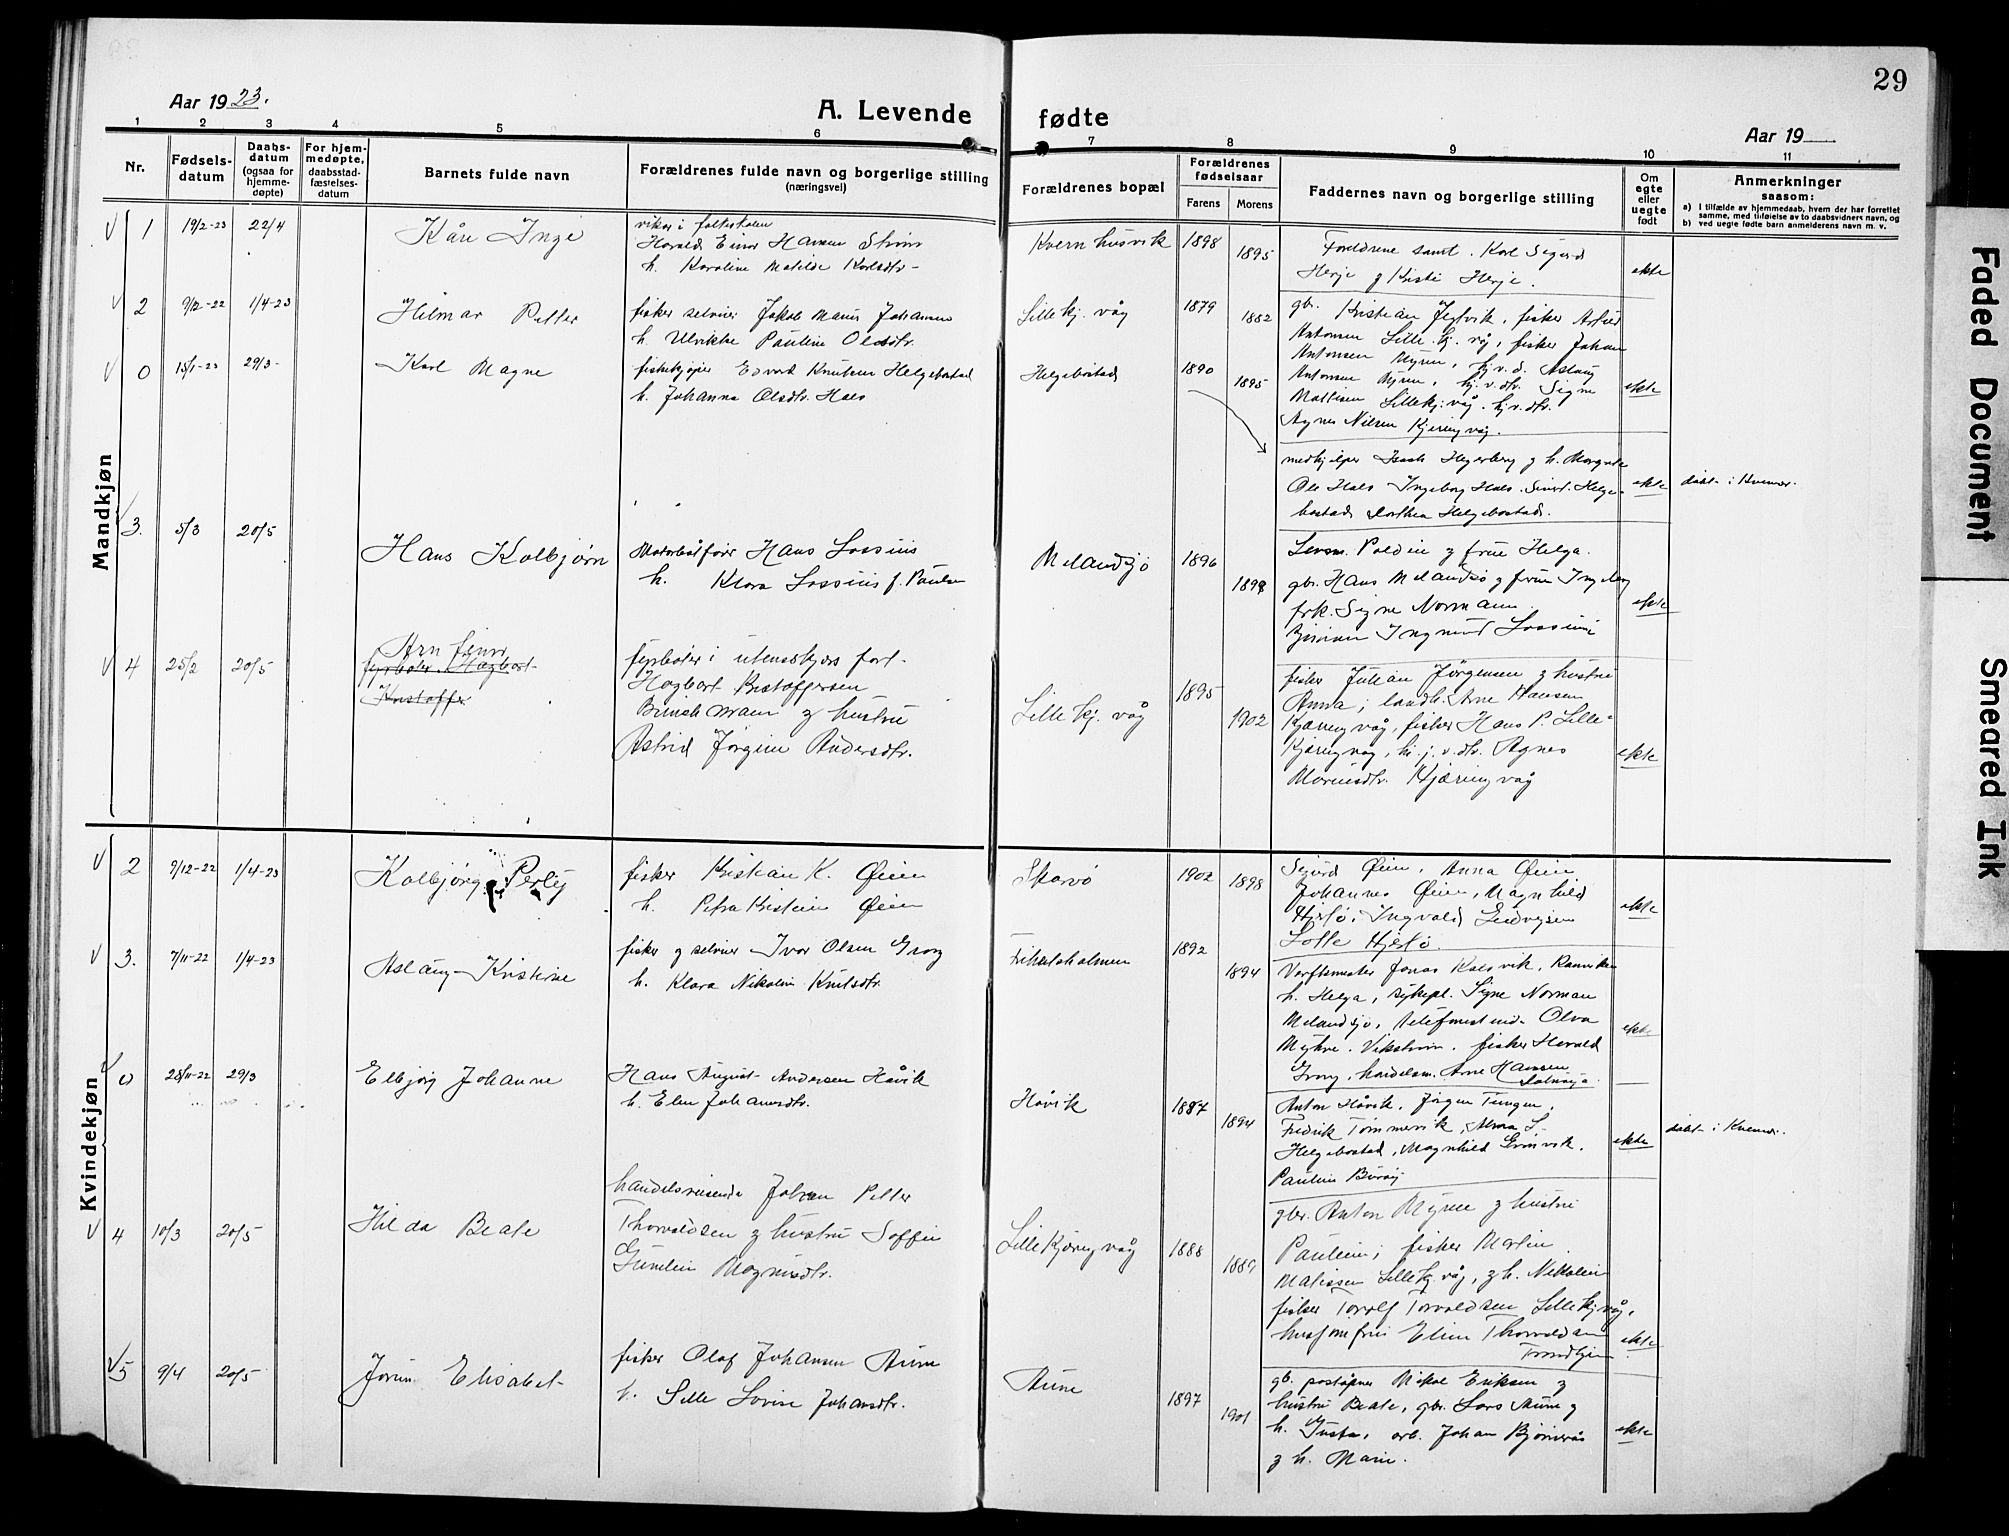 29
Aar 1923.
A. Levende fødte
Aar 19
1 2 3 4 5 6 7 8 9 10 11
Nr.
Fødsels-
datum
Daabs-
datum
(ogsaa for
hjemme-
døpte)
For hjem-
medøpte,
daabsstad-
fæstelses-
datum
Barnets fulde navn
Forældrenes fulde navn og borgerlige stilling
(næringsvei)
Forældrenes bopæl
Forældrenes
fødselsaar
Farens Morens
Faddernes navn og borgerlige stilling
Om
egte
eller
uegte
født
Anmerkninger
saasom:
a) I tilfælde av hjemmedaab, hvem der har forrettet
samme, med tilføielse av to daabsvidners navn, og
b) ved uegte fødte barn anmelderens navn m. v.
Mandkjøn
1 19/2-23 22/4 Kåre Inge
vikar i folkeskolen
Harald Einar Hansen
h. Karoline Matilde Karlsdtr-
Kvernhusvik 1898 1895
Foreldrene samt Karl Sigurd
Herje g Kristi Herje.
ekte
2 9/12-22 1/4-23 Hilmar Petter
fisker selveier Jakob Marius Johansen
h. Ulrikke Pauline Olsdtr.
Lillekj. våg 1879 1882
gbr. Kristian Jektvik, fisker Astrid
Antonsen Lillekj. våg, fisker Johan
Antonsen Myren, hj.v.d. Aslaug
Antonsen Myren, hj.v.dtr. Signe
Mattisen Lillekj.våg. hj.v.dtr.
Agnes Nilsen Kjerringvåg.
ekte
0 15/1-23 29/3- Karl Magne
fiskekjøper Edvard Knutsen Helgebostad
h. Johanna Olsdtr. Hals
Helgebostad 1890 1895
medhjelper Isach Hegerberg g h. Margrete
Ole Hals Ingeborg Hals. Sivert Helge-
bostad Dorthea Helgebostad.
ekte døbt i Kvenvær.
3. 5/3 20/5 Hans Kolbjørn
Motorbåtfører Hans Lossius
h. Klara Lossius f. Paulsen
Melandsjø 1896 1898
Lensm. Paldin g frue Helga.
gbr. Hans Melandsø g frue Ingeborg
frk. Signe Normann
Ingmund Lossius
ekte
4 25/2 20/5 Arn Einar
fyrbøter. Hagbart
Kristoffer
fyrbøter i utenskjærs fart.
Hagbart Kristoffersen
g hustru
Astrid Jørgine Andersdtr.
Lille kj. våg 1895 1902
fisker Julian Jørgensen g hustru
Anna; landh. Arne Hansen
Kjæringvåg, fisker Hans P. Lille-
kjæringvåg, hj. v. dtr. Agnes
Mariusdtr. Kjæringvåg
ekte
Kvindekjøn
2 9/12-22 1/4-23 Kolbjørg Perly
fisker Kristian K. Øien
h. Petra Kristine Øien
Skarvø 1902 1898
Sigurd Øien, Anna Øien
Johannes Øien, Magnhild
Hjertø, Ingvald
Lotte Hjertø.
ekte
3. 7/11-22 1/4-23 Aslaug Kristine
fisker g selveier Ivar Olsen Grong
h. Klara Nikoline Knutsdtr.
1892 1894
Verftsmester Jonas Kalsvik, Ranviken
h. Helga, sykepl. Signe Norman
Melandsjø, telefonistinde Olva
Myhre. Vikstrøm. fisker Harald
Grong, handelsm. Arne Hansen
ekte
0 28/11-22 29/3 Elbjørg Johanne
Hans August Andersen Håvik
h. Elen Johannesdtr.
Håvik 1887 1894
Anton Håvik, Jørgen Tungen,
Fredrik Tømmervik, Alma S.
Helgebostad, Magnhild Grønvik,
Pauline Burøy
ekte døbt i Kvenvær.
4 10/3 20/5 Hilda Beate
handelsreisende Johan Petter
Thorvaldsen g hustru Soffie
Gunelie Magnusdtr.
Lillekjæringvåg 1888 1889
gbr. Anton Myren g hustru
Pauline; fisker Martin
Matissen Lillekj.våg, g h. Nikoline
fisker Torolf Torvaldsen Lillekj.våg,
Elen Thorvaldsen
Trondhjem
ekte
5 9/4 20/5 Jorun Elisabet
fisker Olaf Johansen Aune
h. Sille Lovise Johansdtr.
Aune 1897 1901
gb. postopner Mikal Eriksen g
hustru Beate, gbr. Lars Aune g
h. Gusta, arb. Johan Bjørnerås
g h. Marie.
ekte
Faded Document
Smeared Ink